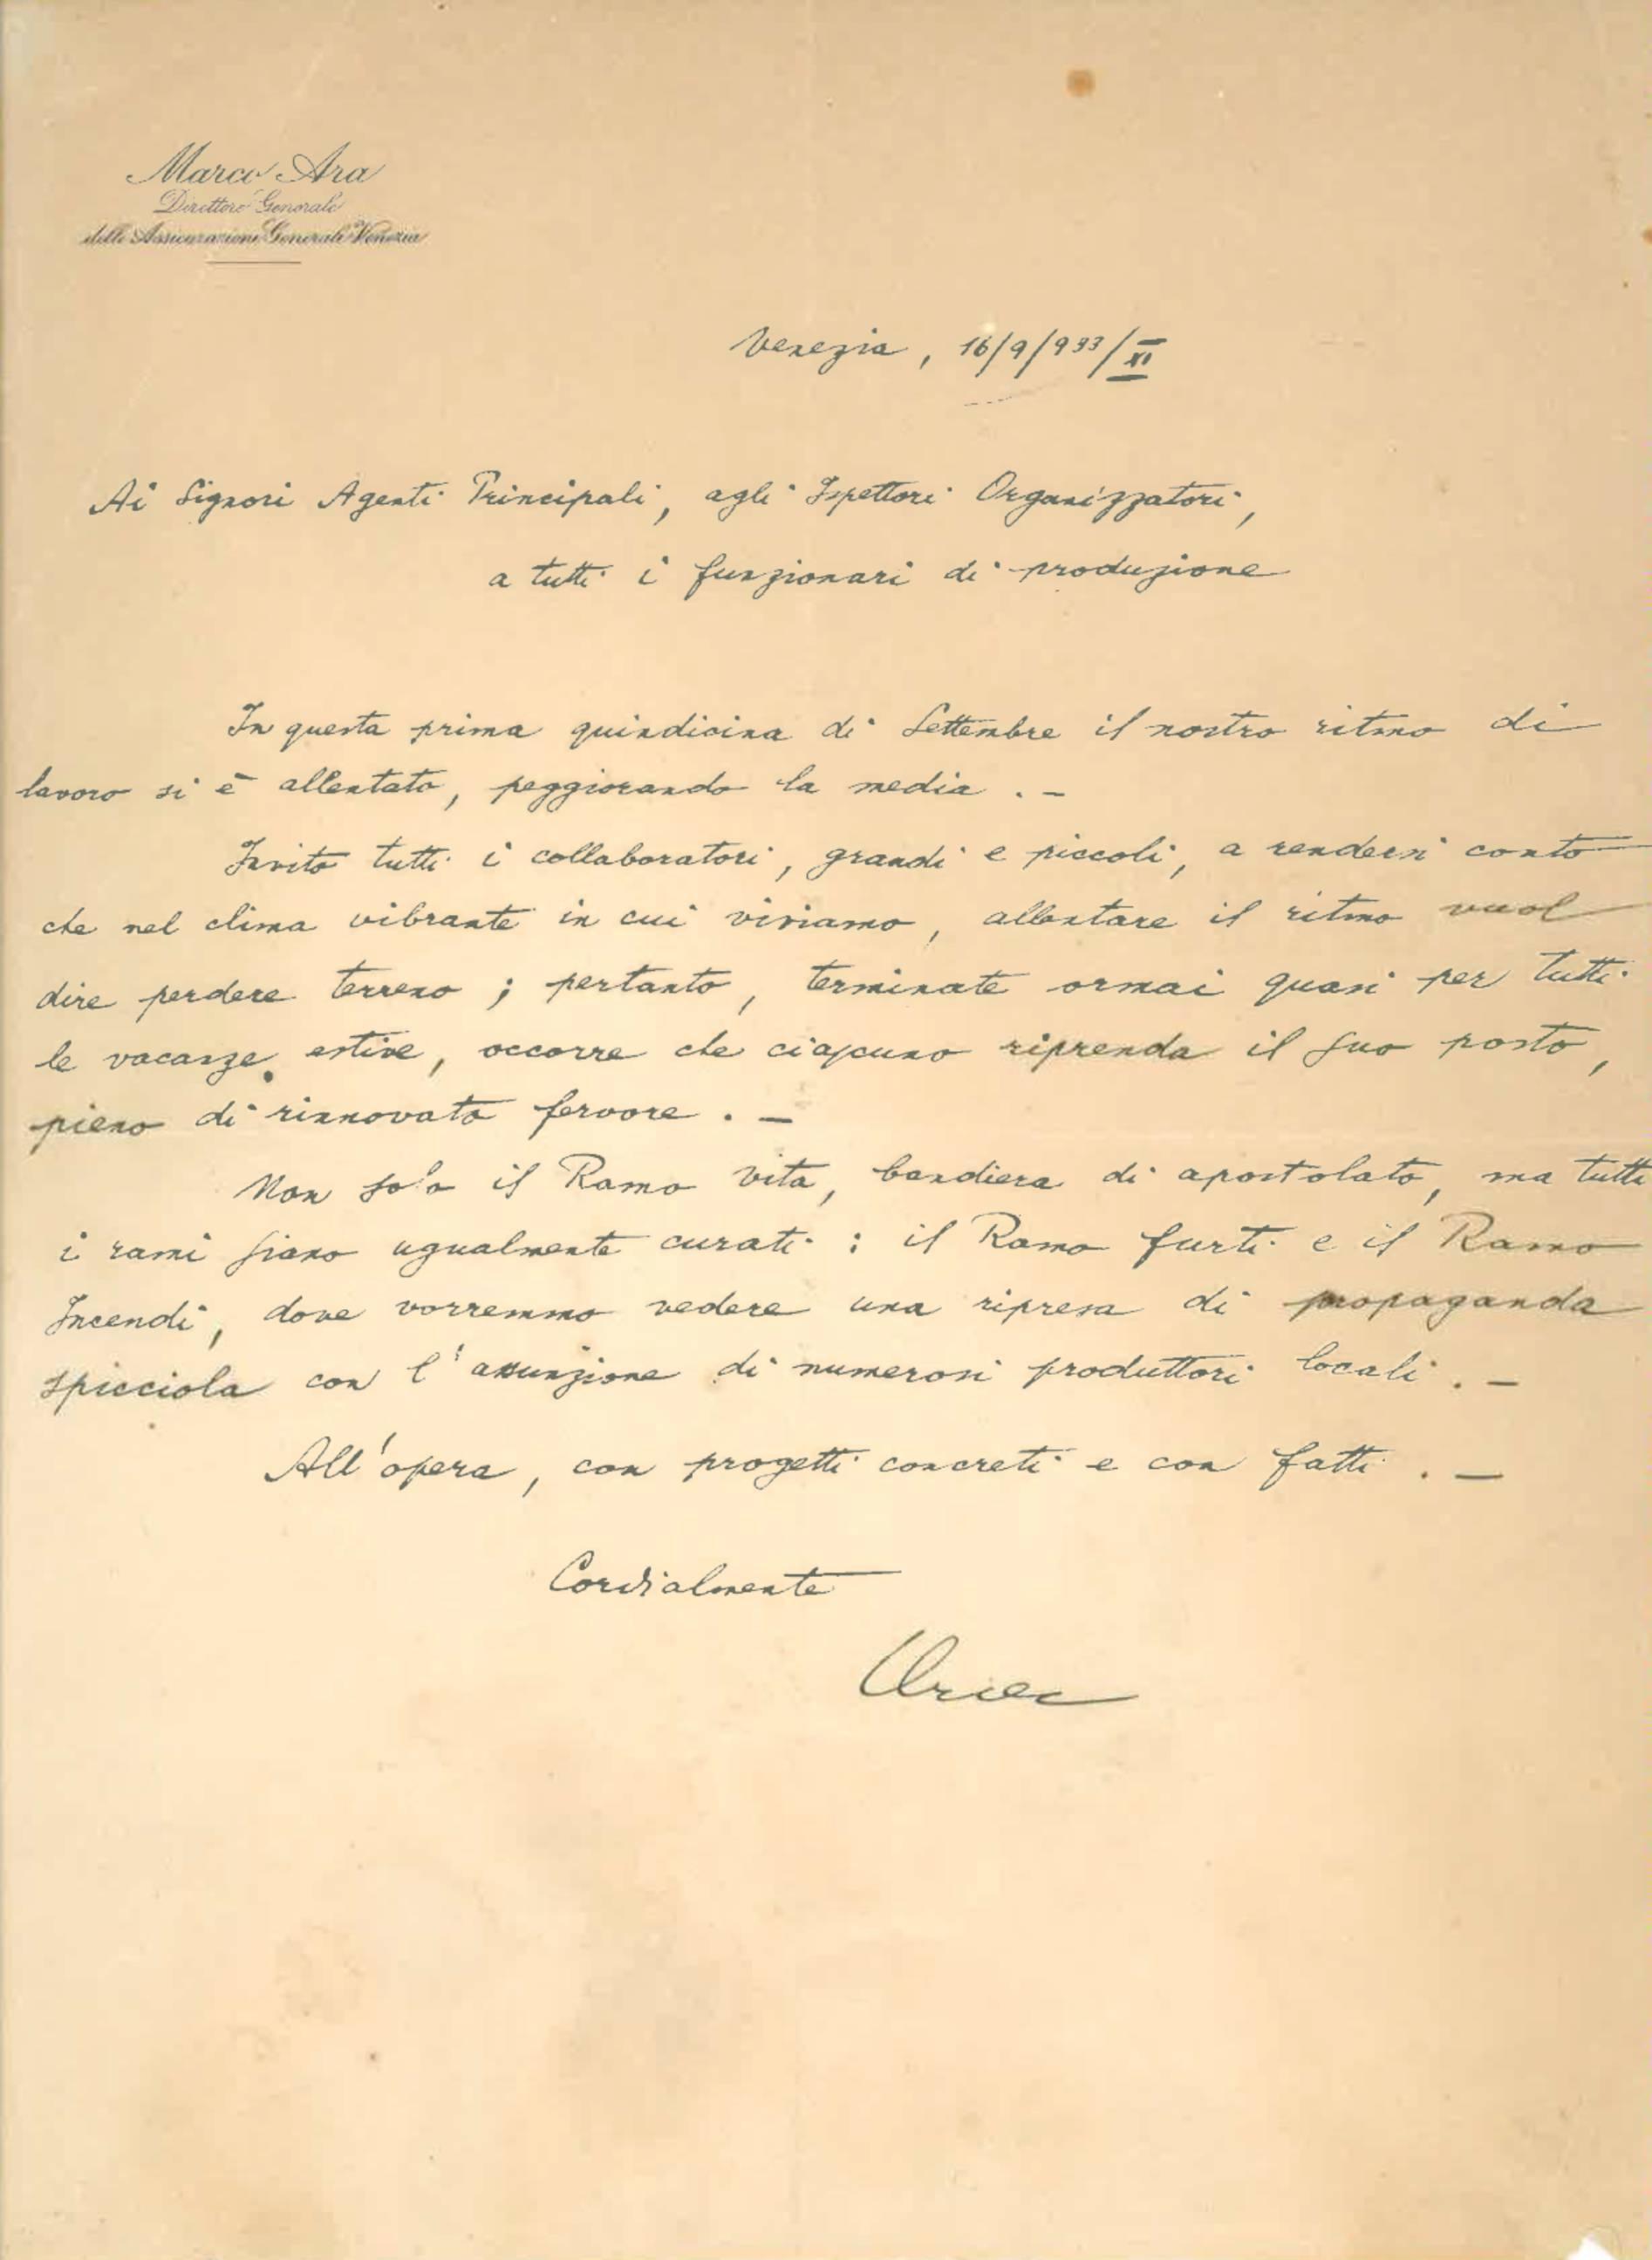 Marco Ara
Direttore Generale
delle Assicurazioni Generali Venezia
Venezia, 16/9/933/XI
Ai Signori Agenti Principali, agli Ispettori Organizzatori,
a tutti i funzionari di produzione
In questa prima quindicina di Settembre il nostro ritmo di
lavoro si è allentato, peggiorando la media . -
Invito tutti i collaboratori, grandi e piccoli, a rendersi conto
che nel clima vibrante in cui viviamo, allentare il ritmo vuol
dire perdere terreno ; pertanto, terminate ormai quasi per tutti
le vacanze estive, occorre che ciascuno riprenda il suo posto,
pieno di rinnovato fervore . -
Non solo il Ramo Vita, bandiera di apostolato, ma tutti
i rami siano ugualmente curati : il Ramo furti e il Ramo
Incendi, dove vorremmo vedere una ripresa di propaganda
spicciola con l'assunzione di numerosi produttori locali . -
All'opera, con progetti concreti e con fatti . -
Cordialmente